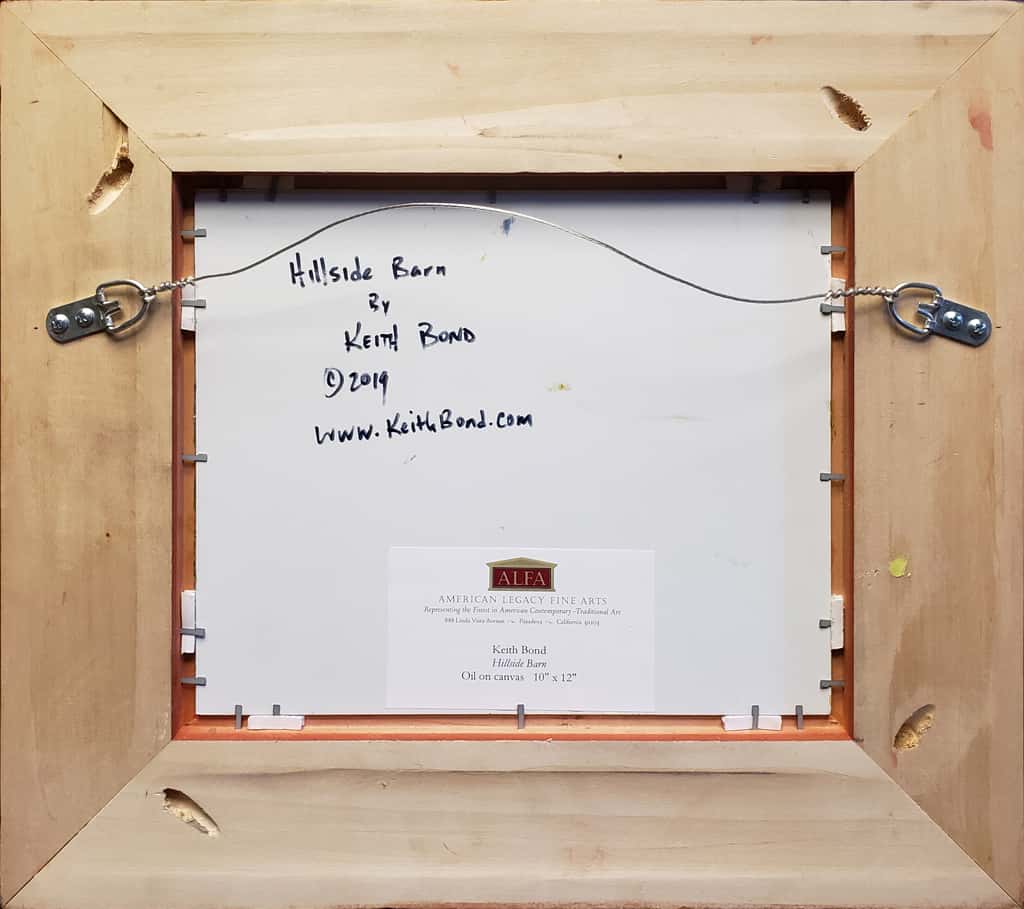 Hillside Barn
By
Keith Bond
© 2019
www.KeithBond.com
ALFA
AMERICAN LEGACY FINE ARTS
Representing the Finest in American Contemporary-Traditional Art
Linda Vista Avenue ~ Pasadena ~ California 91103
Keith Bond
Hillside Barn
Oil on canvas 10" x 12"